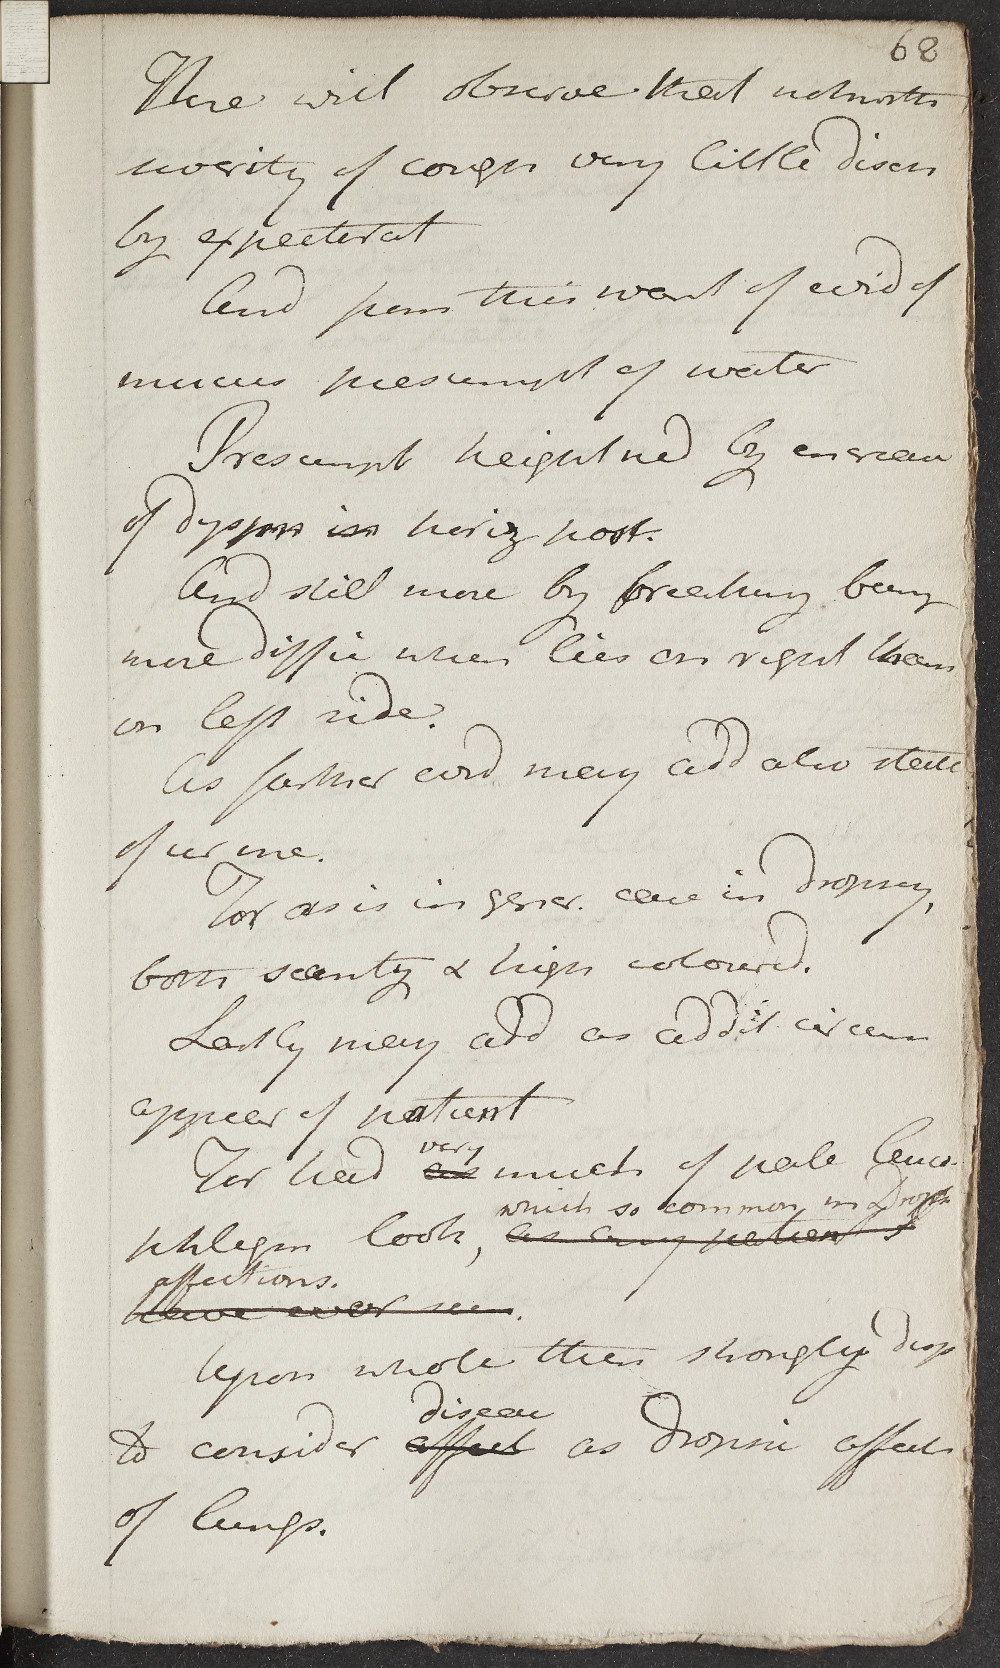 68
Here will observe that notwith
severity of cough very little disch
by expectorat
And from this want of evid of
mucus presumpt of water
Presumpt heightned by encrease
of dyspn in horiz post.
And still more by breathing being
more diffic when lies on right than
on left side.
As farther evid may add also state
of urine.
For as is in gener. case in Dropsy,
both scanty & high coloured.
Lastly may add as addit circum
appear of patient
very
For had as much of pale leuco-
which so common in Dropsi
phlegm look, as any patient I
affections.
have ever seen.
Upon whole then strongly disp
disease
to consider affect as Dropsic affect
of lungs.